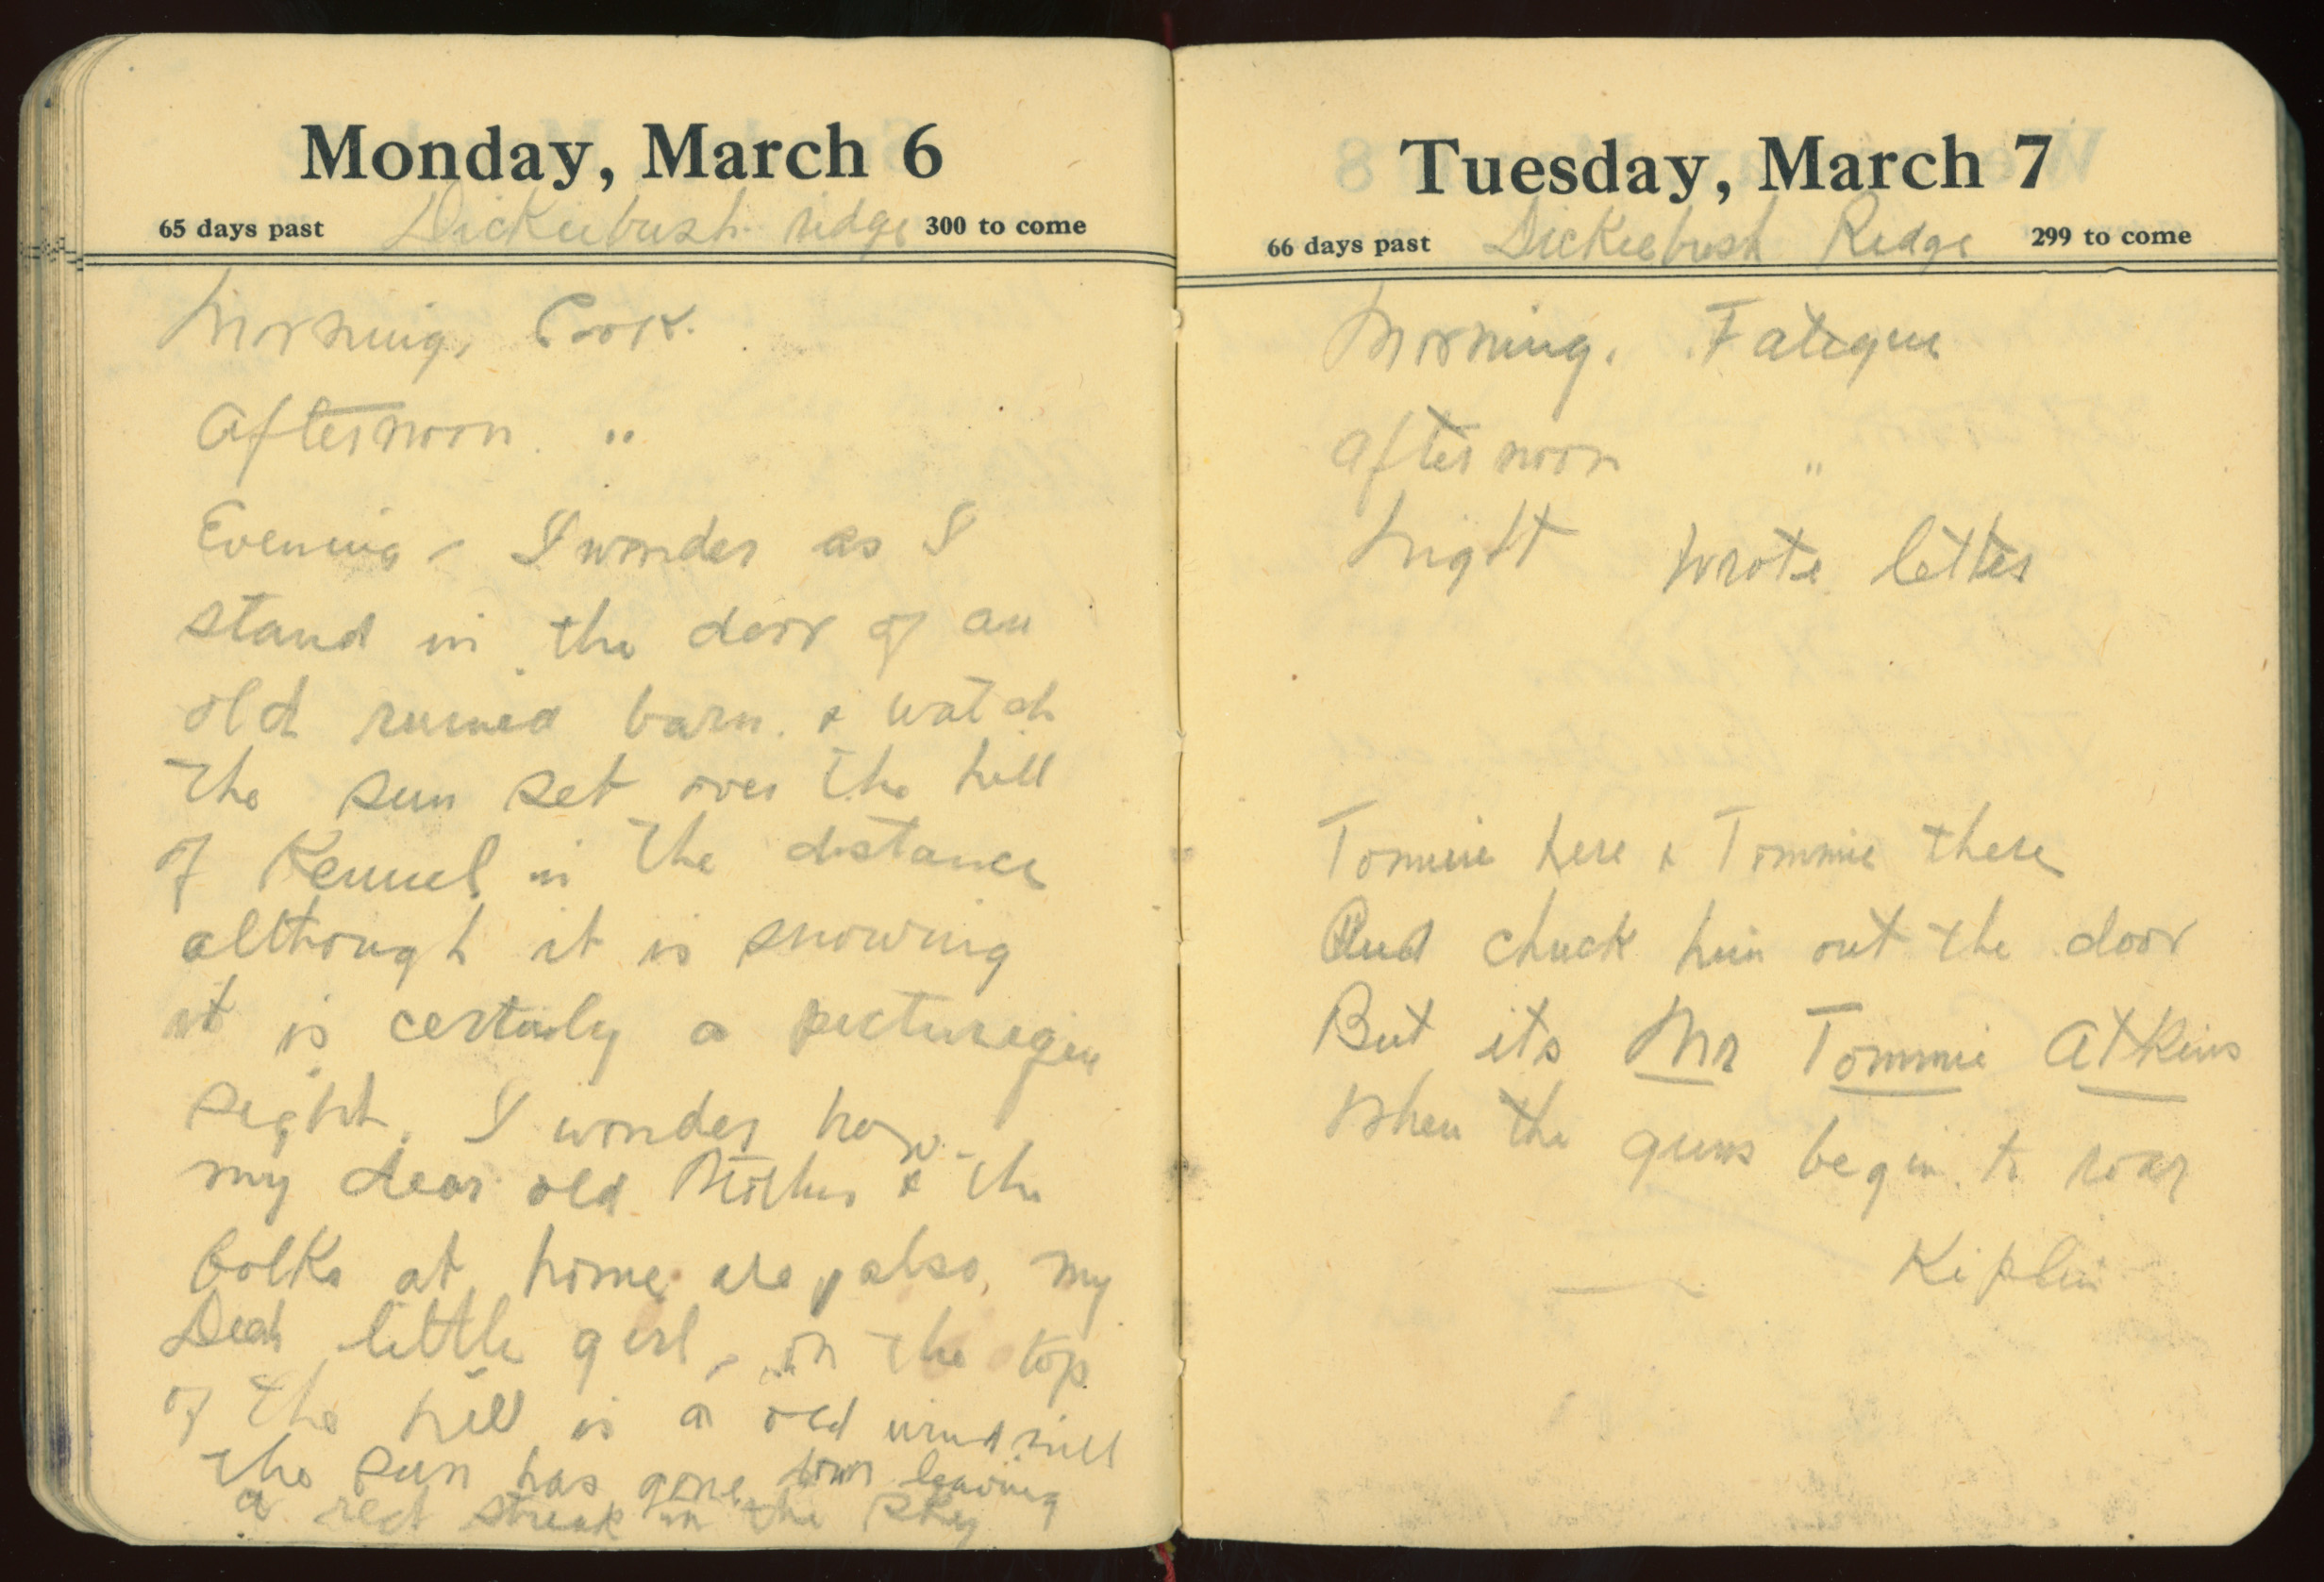 Monday, March 6
65 days past Dickiebush ridge 300 to come
Morning, Cook.
Afternoon. "
Evening - I wonder as I
stand in the door of an
old ruined barn. & watch
the sun set over the hill
of Kemmel in the distance
although it is snowing
it is certainly a picturesque
sight. I wonder how
my dear old Mother & the
folks at home are, also, my
Dear little girl, on the top
of the hill is a old windmill
the sun has gone down leaving
a red streak in the sky
Tuesday, March 7
66 days past Dickiebush Ridge 299 to come
Morning. Fatigue
Afternoon "
Night Wrote letter
Tommie here & Tommie there
And chuck him out the door
But its Mr Tommie Atkins
When the guns begin to roar
Kiplin